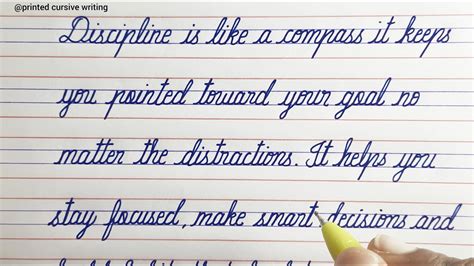 @printed cursive writing
Discipline is like a compass it keeps
you pointed toward your goal no
matter the distractions. It helps you
stay focused, make smart decisions and